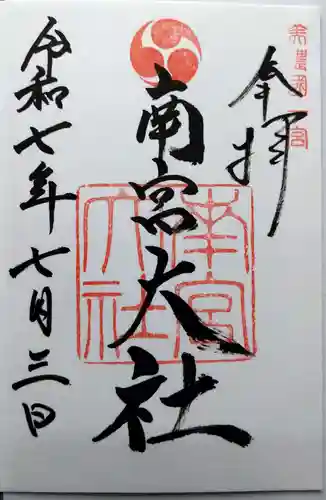 美濃国一宮
奉拝
南宮大社
南宮大社
令和七年七月三日